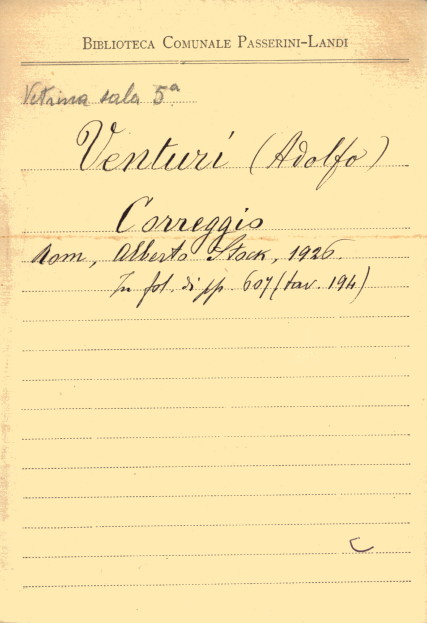 BIBLIOTECA COMUNALE PASSERINI-LANDI
Vetrina sala 5ª
Venturi (Adolfo)
Correggio
Rom, Alberto Stock, 1926.
In fol. di pp. 607 (tav. 194)
C